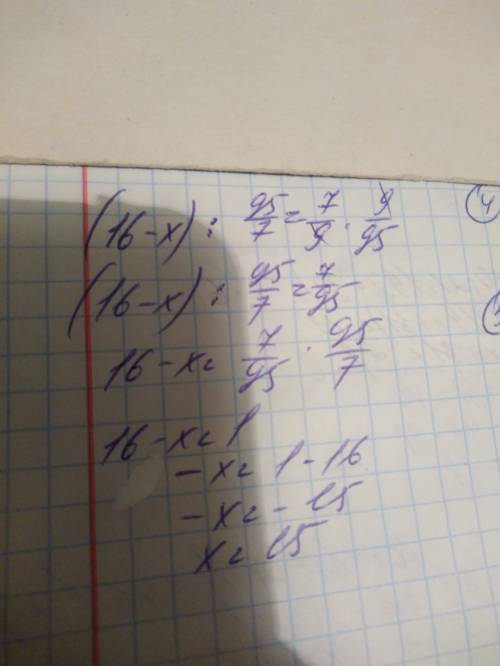 (16-x) : 95/7 = 7/9 · 9/95 4
(16-x) : 95/7 = 7/95
16-x = 7/95 · 95/7
16-x = 1
-x = 1-16
-x = -15
x = 15